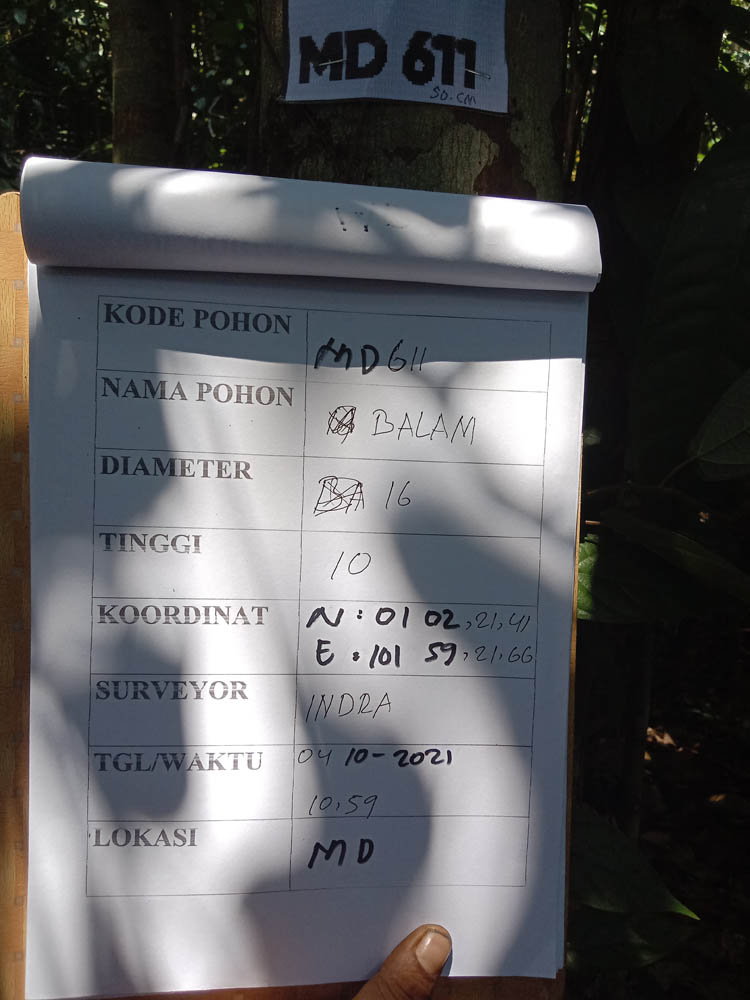 MD 611
50.CM
KODE POHON
MD 611
NAMA POHON
BALAM
DIAMETER
16
TINGGI
10
KOORDINAT
N : 01 02,21,41
E : 101 59,21.66
SURVEYOR
INDRA
TGL/WAKTU
04 10-2021
10.59
LOKASI
MD